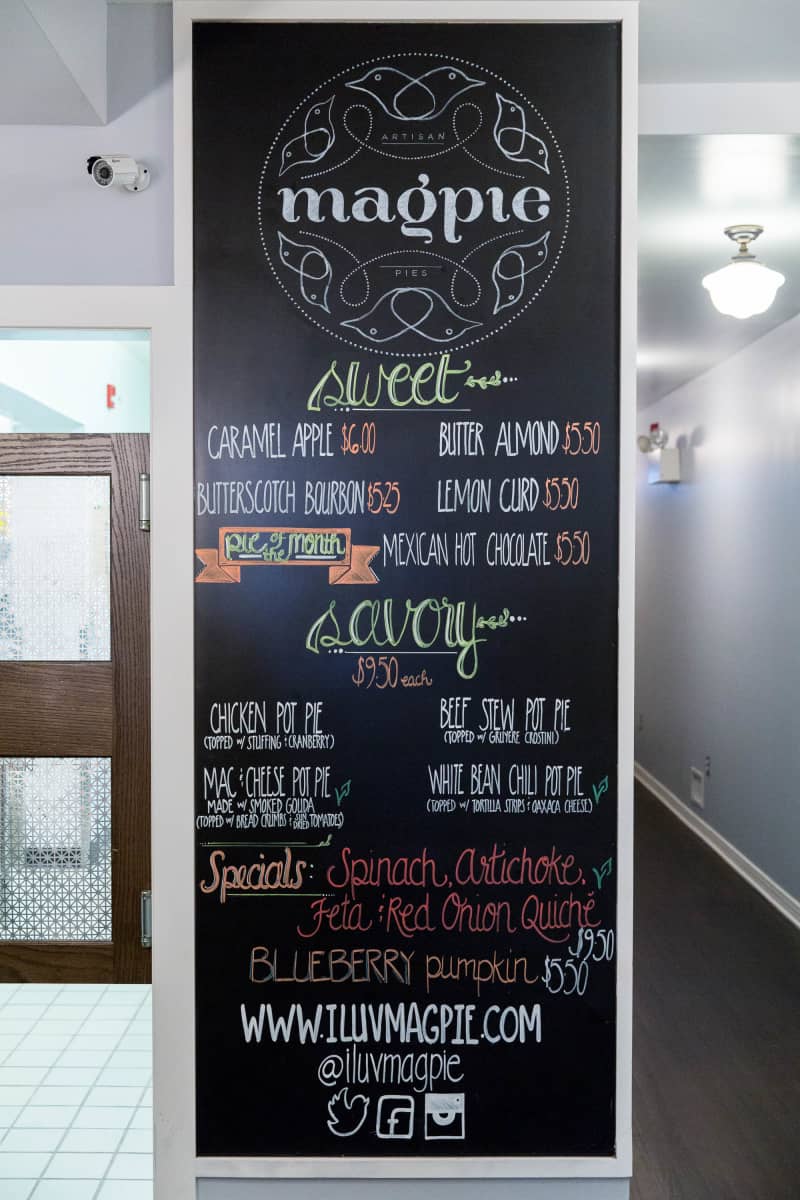 ARTISAN
magpie
PIES
sweet
CARAMEL APPLE $6.00
BUTTER ALMOND $5.50
BUTTERSCOTCH BOURBON $5.25
LEMON CURD $5.50
pie of the month
MEXICAN HOT CHOCOLATE $5.50
savory
$9.50 each
CHICKEN POT PIE
(TOPPED W/ STUFFING & CRANBERRY)
BEEF STEW POT PIE
(TOPPED W/ GRUYERE CROSTINI)
MAC & CHEESE POT PIE
MADE W/ SMOKED GOUDA
(TOPPED W/ BREAD CRUMBS & SUN DRIED TOMATOES)
WHITE BEAN CHILI POT PIE
(TOPPED W/ TORTILLA STRIPS & OAXACA CHEESE)
Specials: Spinach, Artichoke,
Feta & Red Onion Quiche
$9.50
BLUEBERRY pumpkin $5.50
WWW.ILUVMAGPIE.COM
@iluvmagpie
f